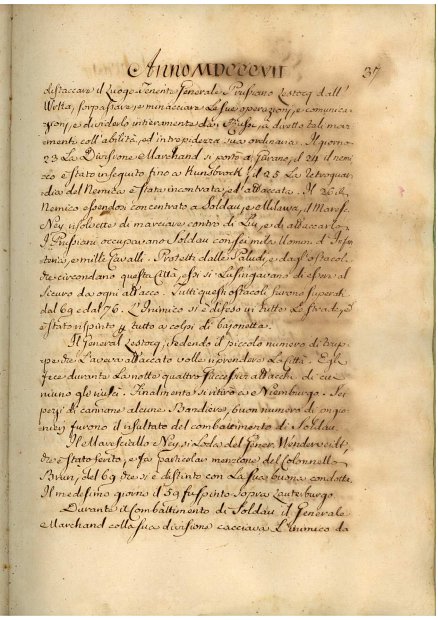 Anno MDCCCVII 37
distaccare il Luogo Tenente Generale Prussiano Lestocq dall'
Wetta, sorpassare, e minacciare le sue operazioni, e comunica-
zioni, e dividerlo intieramente da' Russi, à diretto tali mar
mente coll'abilità, ed intrepidezza sua ordinaria. Il giorno
23 La Divisione Marchand si portò a il 24 il nemi
co è stato inseguito fino a il 25 La Retroguar
dia del Nemico è stata incontrata, ed attaccata. Il 26 il
Nemico essendosi concentrato a Soldau, e Mlawa, il Maresc.
Ney risolvette di marciare contro di Lui, e di attaccarlo.
I Prussiani occupavano Soldau con sei mila Uomini d'Infan
teria, e mille Cavalli. Protetti dalle Paludi, e dagl'ostacoli
che circondano questa Città, essi si Lusingavano di essere al
sicuro da ogni attacco. Tutti questi ostacoli furono superati
dal 69 e dal 76. L'Inimico si è difeso in tutte Le strade, ed
è stato rispinto tutto a colpi di bajonetta.
Il General Lestocq, vedendo il piccolo numero di trup-
pe che L'aveva attaccato volle riprendere La Città. Egli
fece durante La notte quattro successivi attacchi di cui
niuno gli Finalmente si ritirò a Niemburgo. Sei
pezzi di cannone alcune Bandiere, buon numero di prigio
nieri furono il risultato del combattimento di Soldau.
Il Maresciallo Ney si Loda del Gener.
che è stato ferito, e fa particolar menzione del Colonnello
Brun, del 69 che si è distinto con La sua buona condotta.
Il medesimo giorno il 59 fu spinto sopra Lauterburgo.
Durante il Combattimento di Soldau, il Generale
Marchand colla sua divisione cacciava L'inimico da